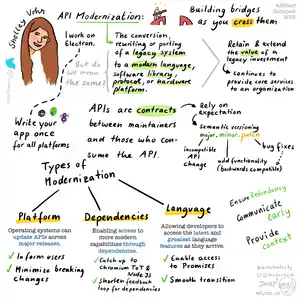 Shelley Vohr
API Modernization:
Building bridges
as you cross them
I work on
Electron.
But do
we mean
the same?
The conversion,
rewriting or porting
of a legacy system
to a modern language,
software library,
protocol, or hardware
platform.
Retain & extend
the value of
legacy investment
Continues to
provide core services
to an organization
Write your
app once
for all platforms
APIs are contracts
between maintainers
and those who con-
sume the API.
Rely on
expectation
semantic versioning
major.minor.patch
incompatible
API
change
add functionality
(backwards compatible)
bug fixes
Types of
Modernization
Platform
Operating systems can
update APIs across
major releases.
Inform users
Minimize breaking
changes
Dependencies
Enabling access to
more modern
capabilities through
dependencies.
Catch up to
Chromium ToT &
Node JS
Shorten feedback
loop for dependencies
Language
Allowing developers to
access the latest and
greatest language
features as they arrive.
Enable access
to Promises
Smooth transition
Ensure Redundancy
Communicate
early
Provide
context